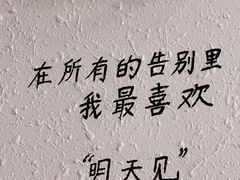 在所有的告别里
我最喜欢
“明天见”